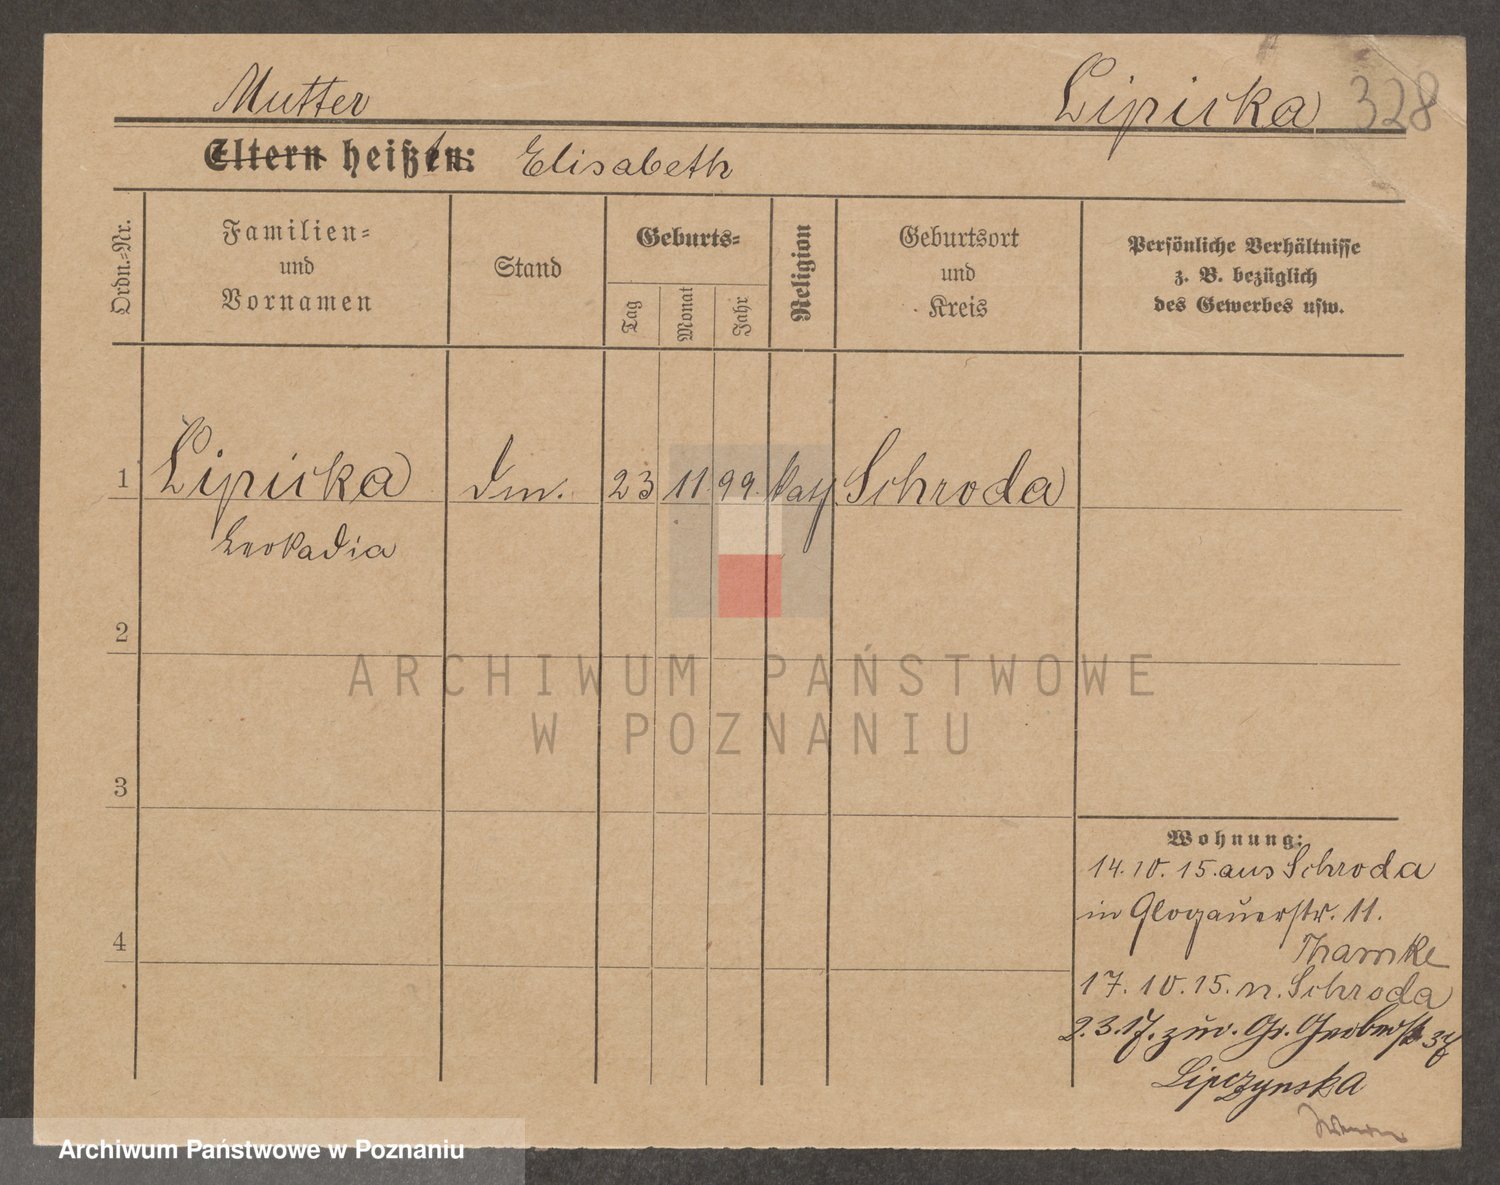 Mutter Lipicka 328
Eltern heißen: Elisabeth
Ordn.-Nr.
Familien-
und
Vornamen
Stand
Geburts-
Tag
Monat
Jahr
Religion
Geburtsort
und
Kreis
Persönliche Verhältnisse
z. B. bezüglich
des Gewerbes usw.
1 Lipicka 23 11 99. kath. Schroda
Leokadia
2
3
4
Wohnung:
14. 10. 15. aus Schroda
in Glogauerstr. 11.
17. 10. 15. n. Schroda
2. 3. 17. zur. Gr. Gerberstr. 37
Lipczynska
ARCHIWUM PAŃSTWOWE
W POZNANIU
Archiwum Państwowe w Poznaniu